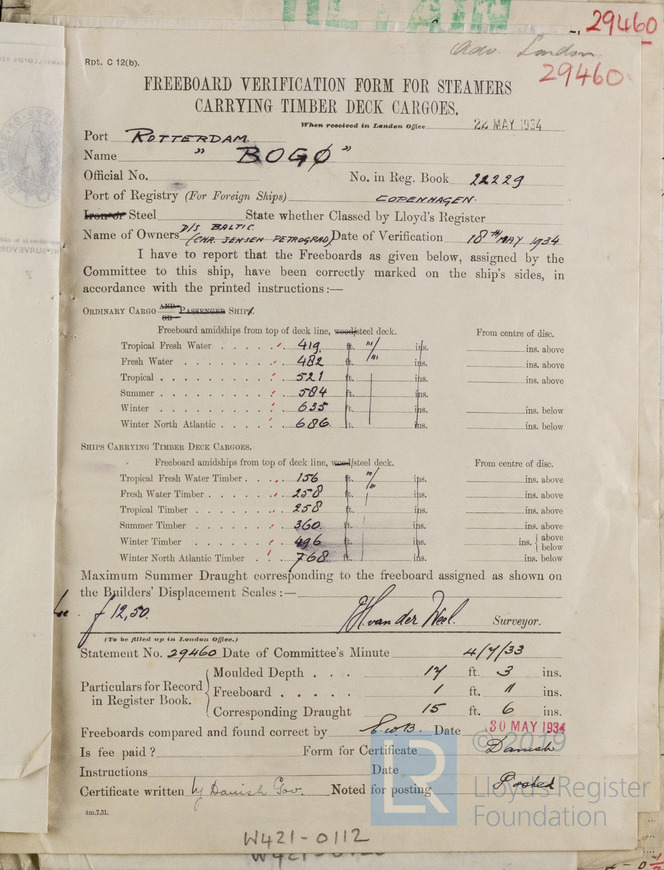 29460
Adv. London.
29460
Rpt. C 12(b).
FREEBOARD VERIFICATION FORM FOR STEAMERS
CARRYING TIMBER DECK CARGOES.
When received in London Office 24 MAY 1934
Port ROTTERDAM
Name "BOGØ"
Official No. No. in Reg. Book 22229
Port of Registry (For Foreign Ships) COPENHAGEN.
Iron or Steel State whether Classed by Lloyd's Register
Name of Owners D/S BALTIC (CHR. JENSEN PETROGRAD) Date of Verification 18TH MAY 1934
I have to report that the Freeboards as given below, assigned by the
Committee to this ship, have been correctly marked on the ship's sides, in
accordance with the printed instructions:—
ORDINARY CARGO AND OR PASSENGER SHIPS.
Freeboard amidships from top of deck line, wood/steel deck. From centre of disc.
Tropical Fresh Water 419 ft. m/m ins. ins. above
Fresh Water 482 ft. ins. ins. above
Tropical 521 ft. ins. ins. above
Summer 584 ft. ins.
Winter 635 ft. ins. ins. below
Winter North Atlantic 686 ft. ins. ins. below
SHIPS CARRYING TIMBER DECK CARGOES.
Freeboard amidships from top of deck line, wood/steel deck. From centre of disc.
Tropical Fresh Water Timber 156 ft. m/m ins. ins. above
Fresh Water Timber 258 ft. ins. ins. above
Tropical Timber 258 ft. ins. ins. above
Summer Timber 360 ft. ins. ins. above
Winter Timber 496 ft. ins. ins. { above below
Winter North Atlantic Timber 768 ft. ins. ins. below
Maximum Summer Draught corresponding to the freeboard assigned as shown on
the Builders' Displacement Scales:—
f 12,50. JH van der Weel. Surveyor.
(To be filled up in London Office.)
Statement No. 29460 Date of Committee's Minute 4/7/33
Particulars for Record in Register Book.
Moulded Depth 17 ft. 3 ins.
Freeboard 1 ft. 11 ins.
Corresponding Draught 15 ft. 6 ins.
Freeboards compared and found correct by E.W.B. Date 30 MAY 1934
Is fee paid? Form for Certificate Danish
Instructions Date
Certificate written by Danish Gov. Noted for posting Posted
4m,7,31.
© 2019
LR Lloyd's Register
Foundation
W421-0112